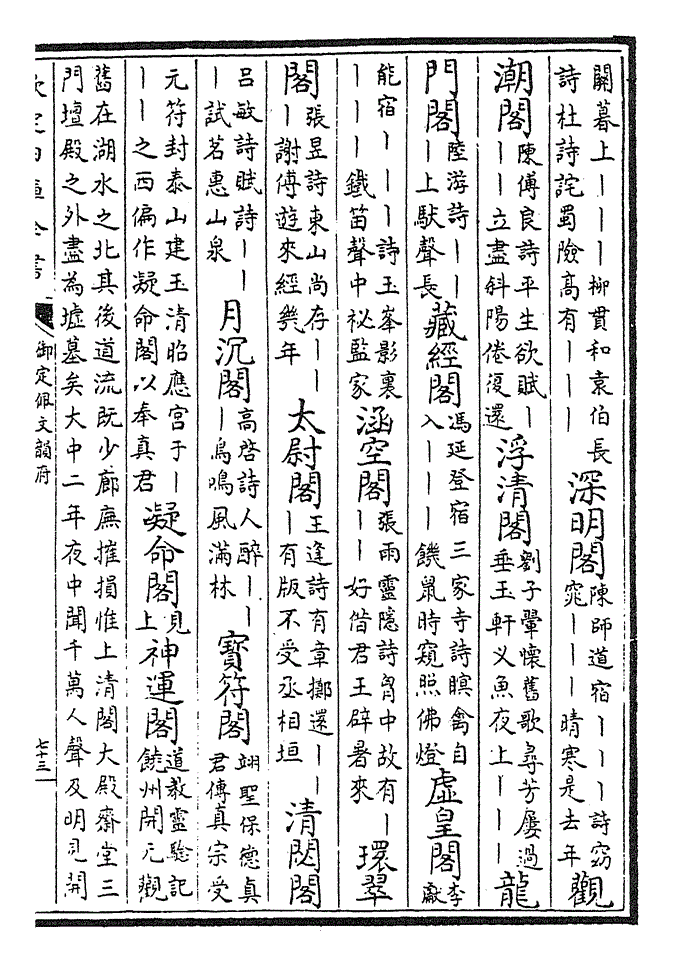 關暮上｜｜｜柳貫和袁伯長詩杜詩詫蜀險髙有｜｜｜深明閣陳師道宿｜｜｜詩窈窕｜｜｜晴寒是去年觀
潮閣陳傅良詩平生欲賦｜｜立盡斜陽倦復還浮清閣劉子翬懐舊歌尋芳屢過垂玉軒义魚夜上｜｜｜龍
門閣陸游詩｜｜｜上馱聲長藏經閣馮延登宿三家寺詩瞑禽自入｜｜｜饑鼠時窺照佛燈虛皇閣李獻
能宿｜｜｜詩玉峯影裏｜｜｜鐵笛聲中祕監家涵空閣張雨靈隱詩胷中故有｜｜｜好借君王辟暑來環翠
閣張昱詩東山尚存｜｜｜謝傅遊來經幾年太尉閣王逢詩有章擲還｜｜｜有版不受丞相垣清閟閣
呂敏詩賦詩｜｜｜試茗惠山泉月沉閣高啓詩人醉｜｜｜烏鳴風滿林寶符閣翊聖保德真君傳真宗受
元符封泰山建玉清昭應宫于｜｜｜之西偏作凝命閣以奉真君凝命閣見上神運閣道教靈驗記饒州開元觀
舊在湖水之北其後道流既少廊廡摧損惟上清閣大殿齋堂三門壇殿之外盡為墟墓矣大中二年夜中聞千萬人聲及明見開
欽定四庫全書
御定佩文韻府
七十三